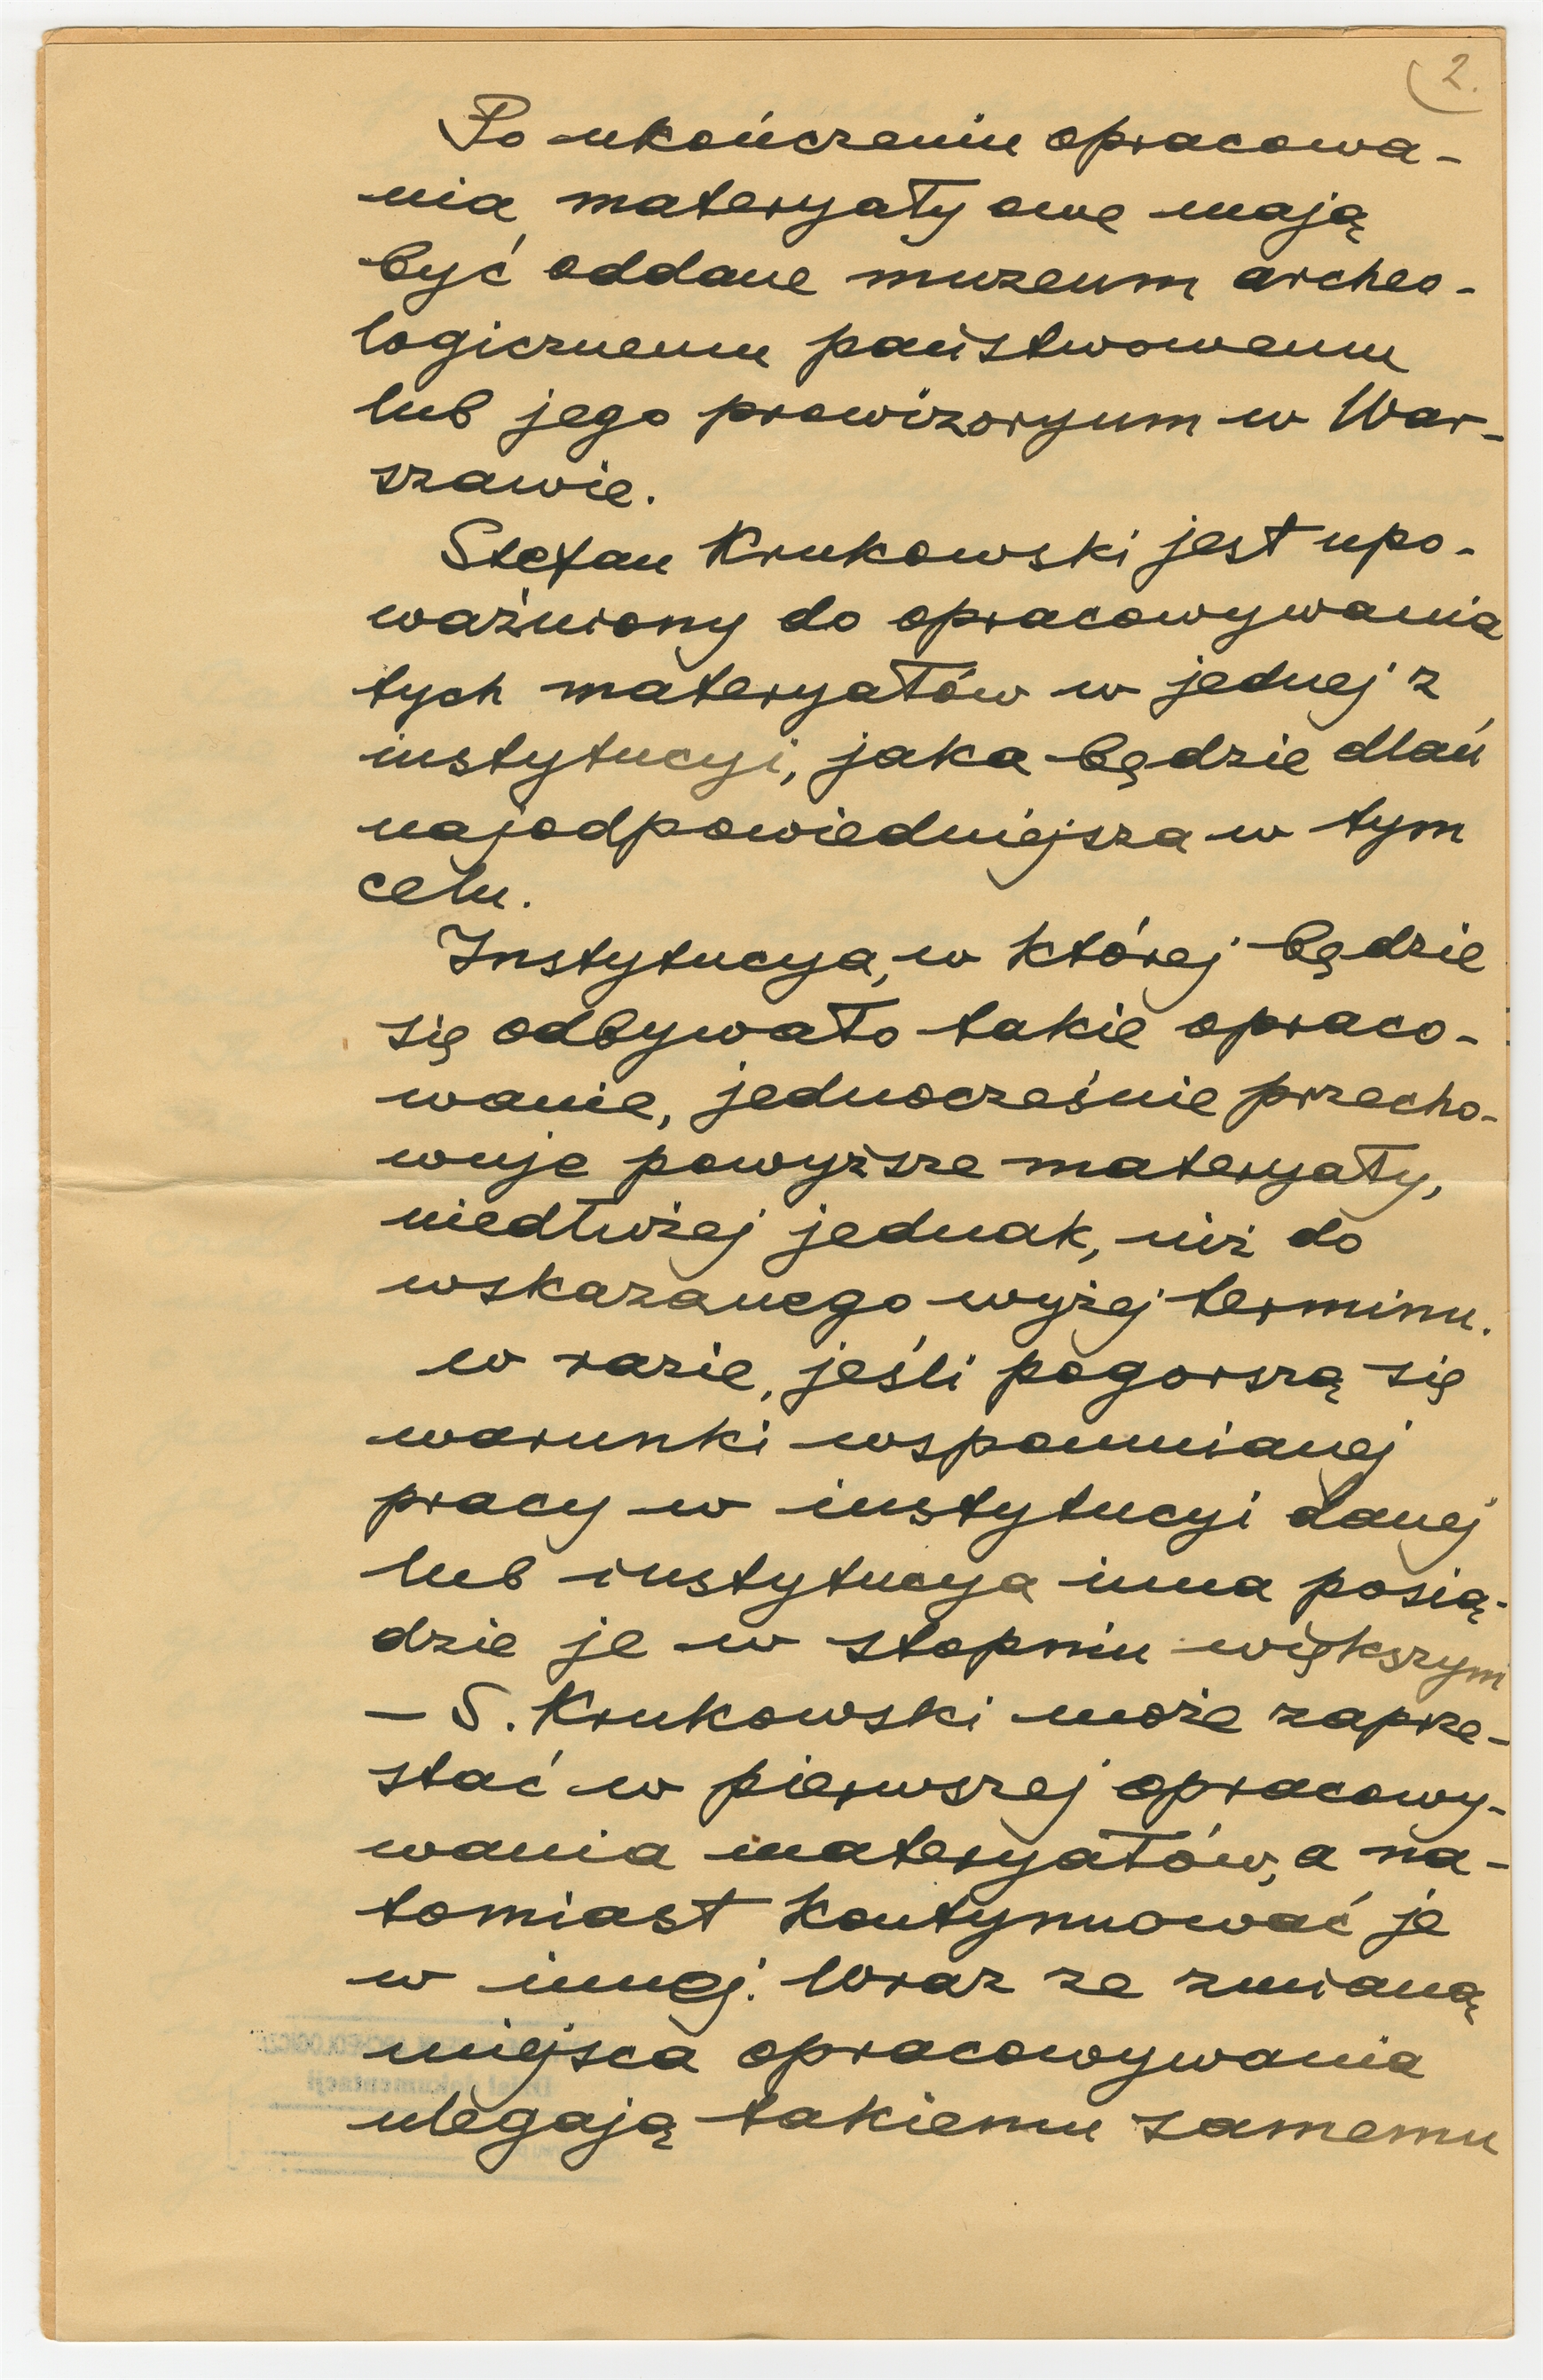 2.
Po ukończeniu opracowa-
nia materyały owe mają
być oddane muzeum archeo-
logicznemu państwowemu
lub jego prowizoryum w War-
szawie.
Stefan Krukowski jest upo-
ważniony do opracowywania
tych materyałów w jednej z
instytucyi, jaka będzie dlań
najodpowiedniejsza w tym
celu.
Instytucya, w której będzie
się odbywało takie opraco-
wanie, jednocześnie przecho-
wuje powyższe materyały,
niedłużej jednak, niż do
wskazanego wyżej terminu.
w razie, jeśli pogorszą się
warunki wspomnianej
pracy w instytucyi danej
lub instytucya inna posią-
dzie je w stopniu większym
– S. Krukowski może zaprze-
stać w pierwszej opracowy-
wania materyałów, a na-
tomiast kontynuować je
w innej. Wraz ze zmianą
miejsca opracowywania
ulegają takiemu samemu